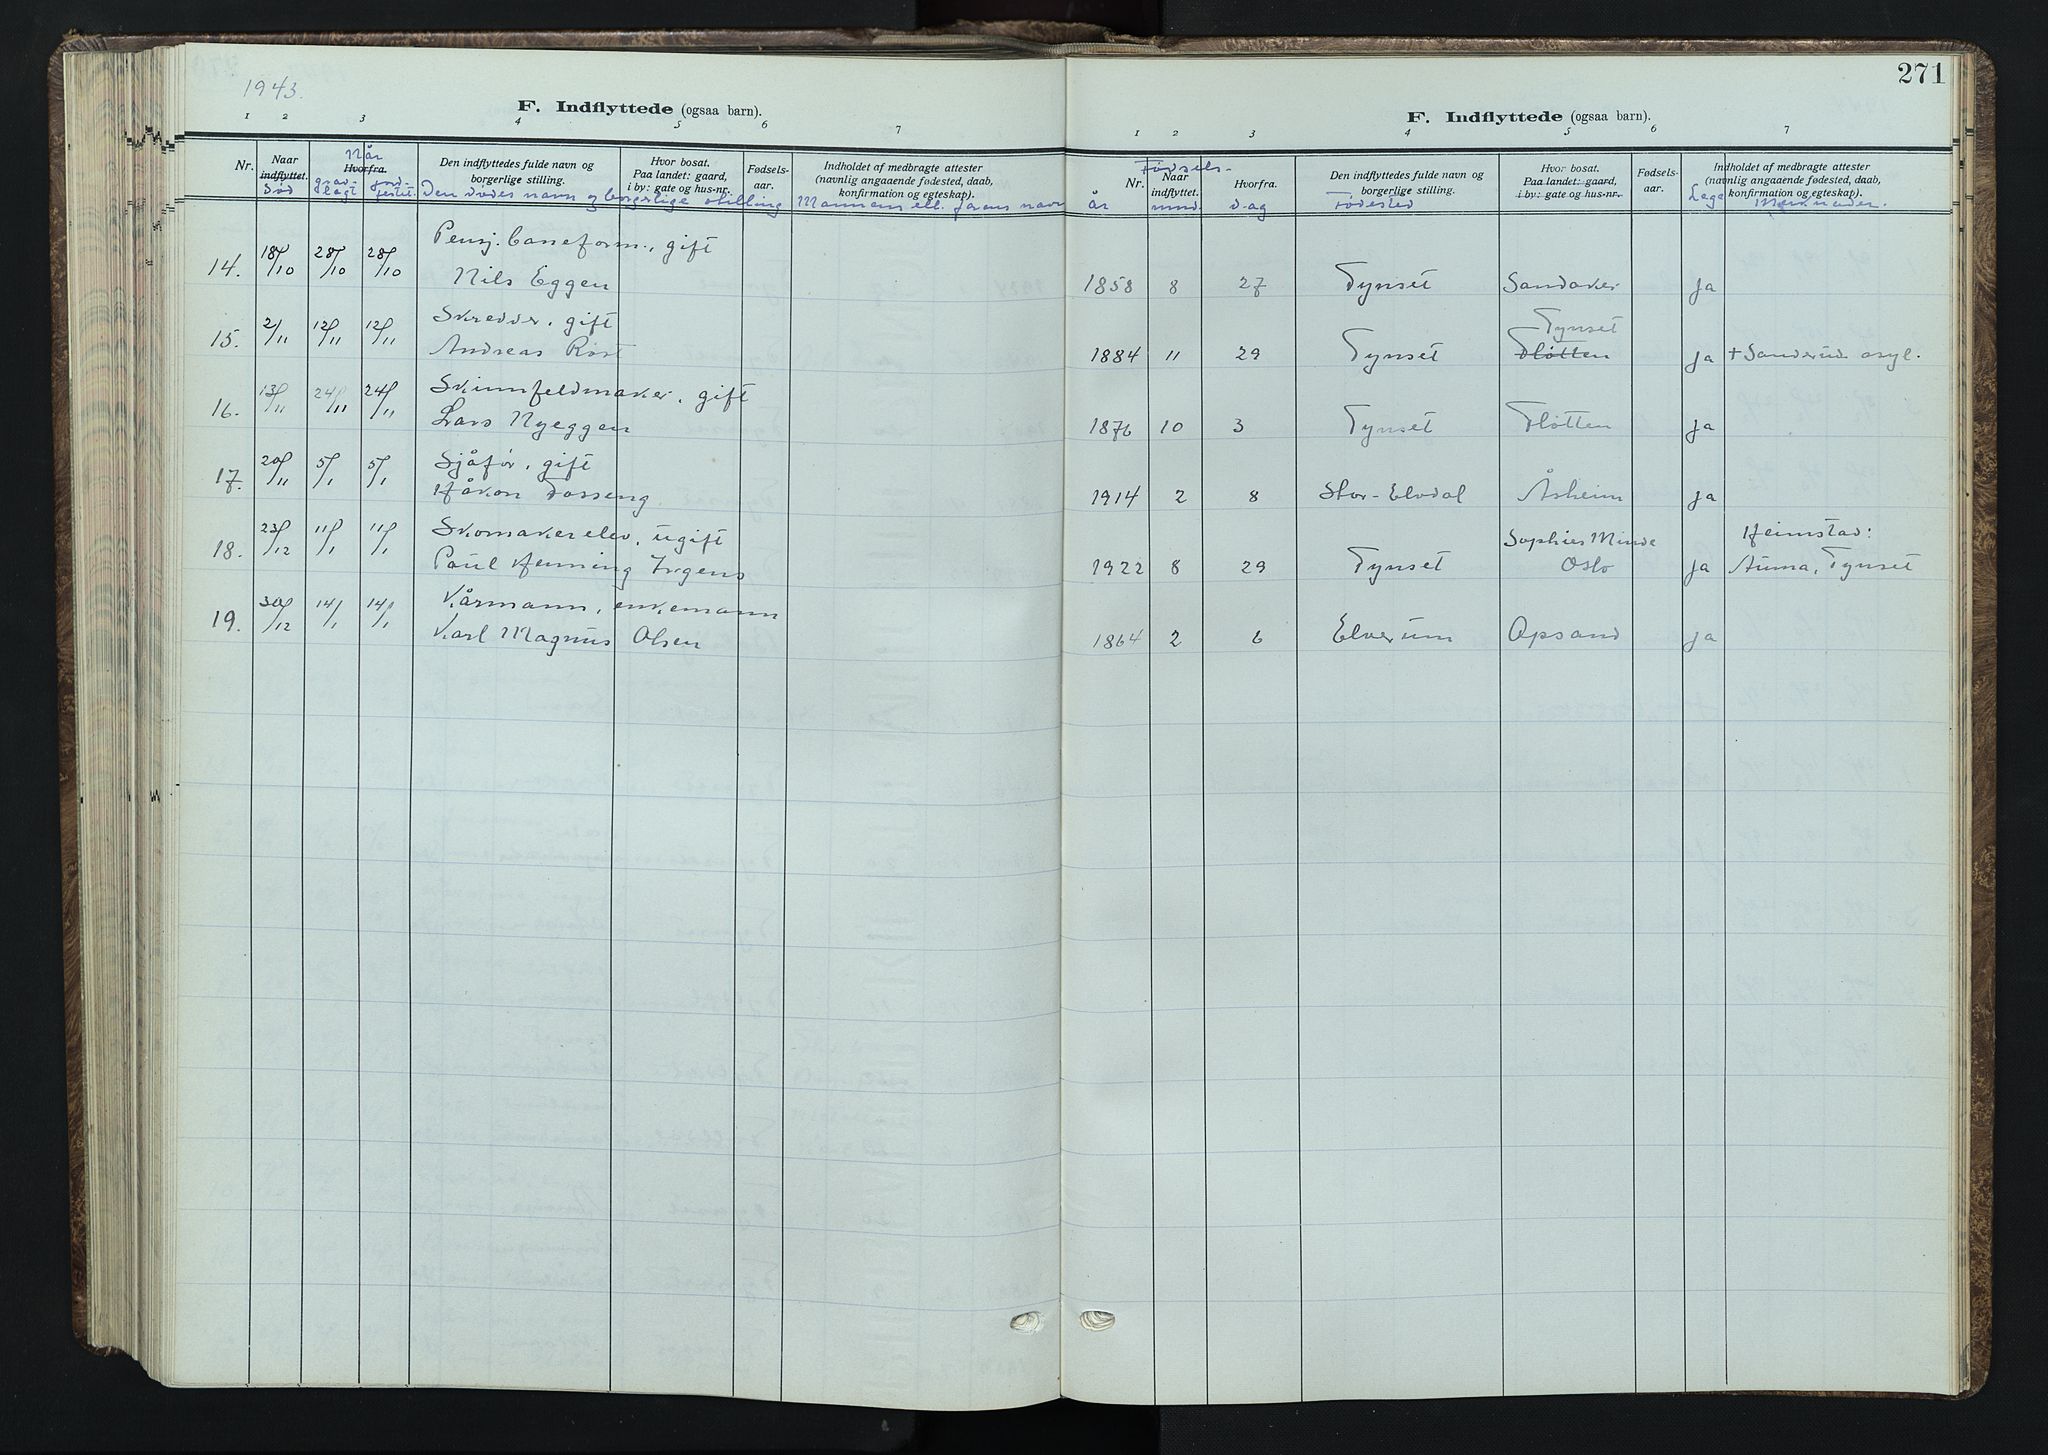 1943.
F. Indflyttede (ogsaa barn).
1 2 3 4 5 6 7
Nr.
Naar indflyttet.
død
Når
Hvorfra.
grav-lagt
jord-festet
Den indflyttedes fulde navn og
borgerlige stilling.
Hvor bosat.
Paa landet: gaard,
i by: gate og hus-nr.
Fødsels-
aar.
Indholdet af medbragte attester
(navnlig angaaende fødested, daab,
konfirmation og egteskap).
Den dødes navn og borgerlige stilling
Mannens ell. farens navn
14. 18/10 28/10 28/10 Pensj. baneform., gift
Nils Eggen
15. 2/11 12/11 12/11 Skredder, gift
Andreas Røst
16. 13/11 24/11 24/11 Skinnfeldmaker, gift
Lars Nyeggen
17. 20/11 5/1 5/1 Sjåfør, gift
Håkon Tosseng
18. 23/12 11/1 11/1 Skomakerelev, ugift
Paul Henning Irgens
19. 30/12 14/1 14/1 Kårmann, enkemann
Karl Magnus Olsen
271
F. Indflyttede (ogsaa barn).
1 2 3 4 5 6 7
Fødsels-
Nr.
år
Naar
indflyttet.
mnd.
Hvorfra.
dag
Den indflyttedes fulde navn og
borgerlige stilling.
Fødested
Hvor bosat.
Paa landet: gaard,
i by: gate og hus-nr.
Fødsels-
aar.
Indholdet af medbragte attester
(navnlig angaaende fødested, daab,
konfirmation og egteskap).
Lege
Merknader.
1858 8 27 Tynset Sandaker ja
Tynset
1884 11 29 Tynset Fløtten ja + Sanderud asyl.
1876 10 3 Tynset Fløtten ja
1914 2 8 Stor-Elvdal Åsheim ja
Sophies Minde Heimstad:
1922 8 29 Tynset Oslo ja Auma, Tynset
1864 2 6 Elverum Opsand ja